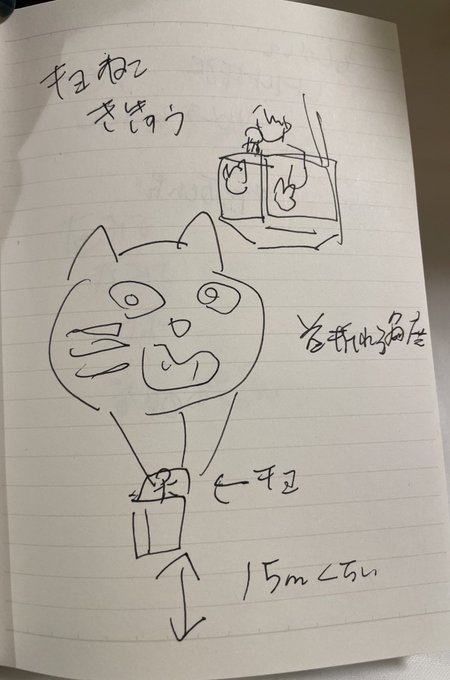 キヨねこ
ききゅう
首折れる角度
←キヨ
15mくらい